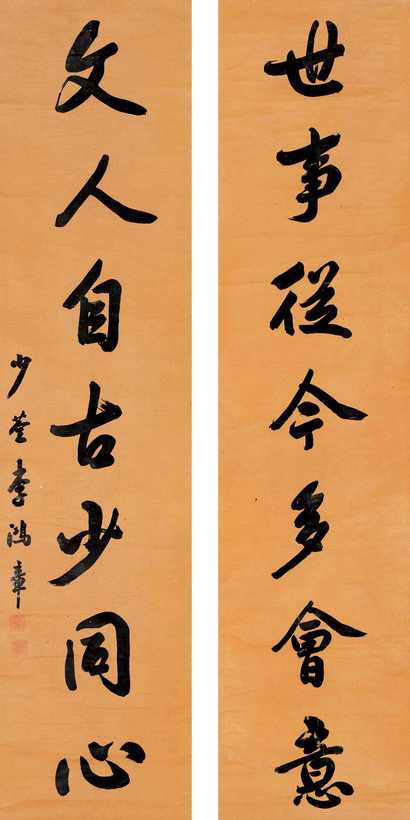 世事從今多會意
文人自古少同心
少荃李鴻章